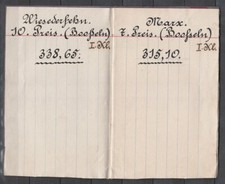 Wiesederfehn.
10. Preis. (Boosseln)
I. Kl.
338,65.
Marx.
7. Preis. (Boosseln)
I. Kl.
315,10.